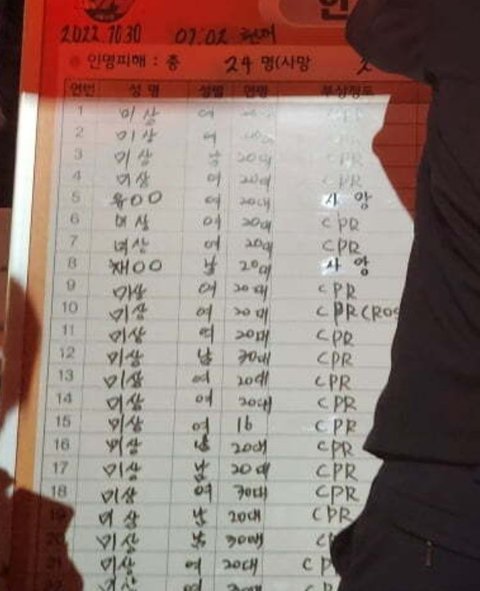 2022.10.30 01:02 현재
인명피해 : 총 24명(사망 2
연번 성명 성별 연령 부상정도
1 미상 여 CPR
2 미상 여 20대 CPR
3 미상 남 20대 CPR
4 미상 여 20대 CPR
5 OO 여 20대 사망
6 미상 여 20대 CPR
7 미상 여 20대 CPR
8 채OO 남 20대 사망
9 미상 여 20대 CPR
10 미상 여 20대 CPR(ROS
11 미상 여 20대 CPR
12 미상 남 30대 CPR
13 미상 여 20대 CPR
14 미상 여 20대 CPR
15 미상 여 16 CPR
16 미상 남 20대 CPR
17 미상 남 20대 CPR
18 미상 여 30대 CPR
19 미상 남 20대 CPR
20 미상 남 30대 CP
21 미상 여 20대 CP
22 미상 여 30대